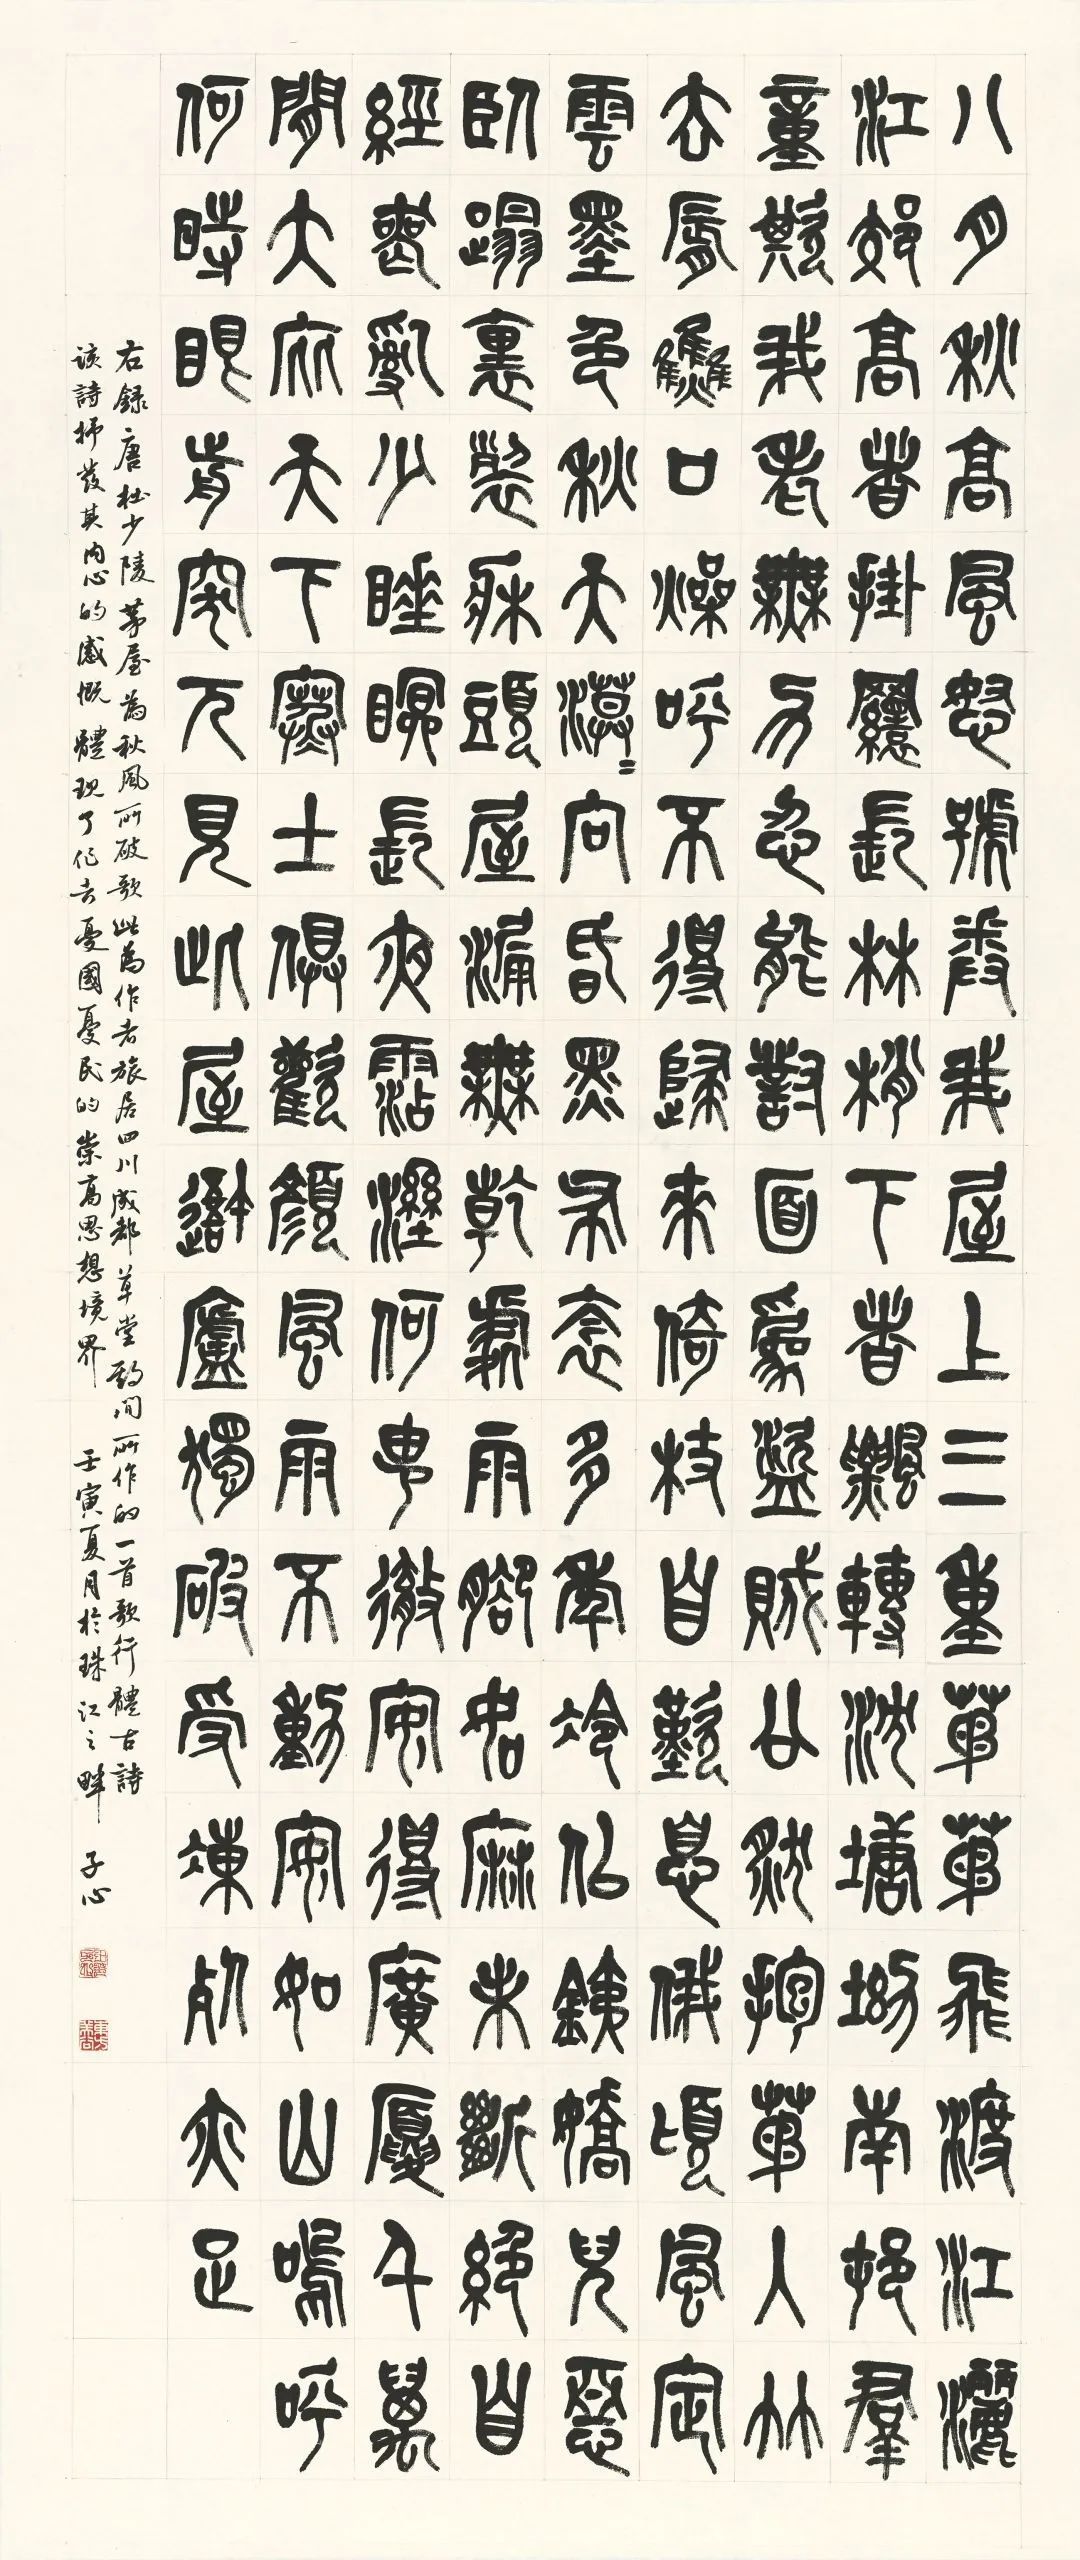 八月秋高風怒號卷我屋上三重茅茅飛渡江灑
江郊高者掛罥長林梢下者飄轉沈塘坳南邨羣
童欺我老無力忍能對面為盜賊公然抱茅入竹
去脣焦口燥呼不得歸來倚杖自歎息俄頃風定
雲墨色秋天漠〻向昏黑布衾多年冷似鐵嬌兒惡
臥蹋裏裂牀頭屋漏無乾處雨腳如麻未斷絕自
經喪亂少睡眠長夜霑溼何由徹安得廣廈千萬
間大庇天下寒士俱歡顏風雨不動安如山嗚呼
何時眼前突兀見此屋吾廬獨破受凍死亦足
右錄唐杜少陵茅屋為秋風所破歌此為作者旅居四川成都草堂期間所作的一首歌行體古詩
該詩抒發其內心的感慨體現了作者憂國憂民的崇高思想境界 壬寅夏月於珠江之畔 子心